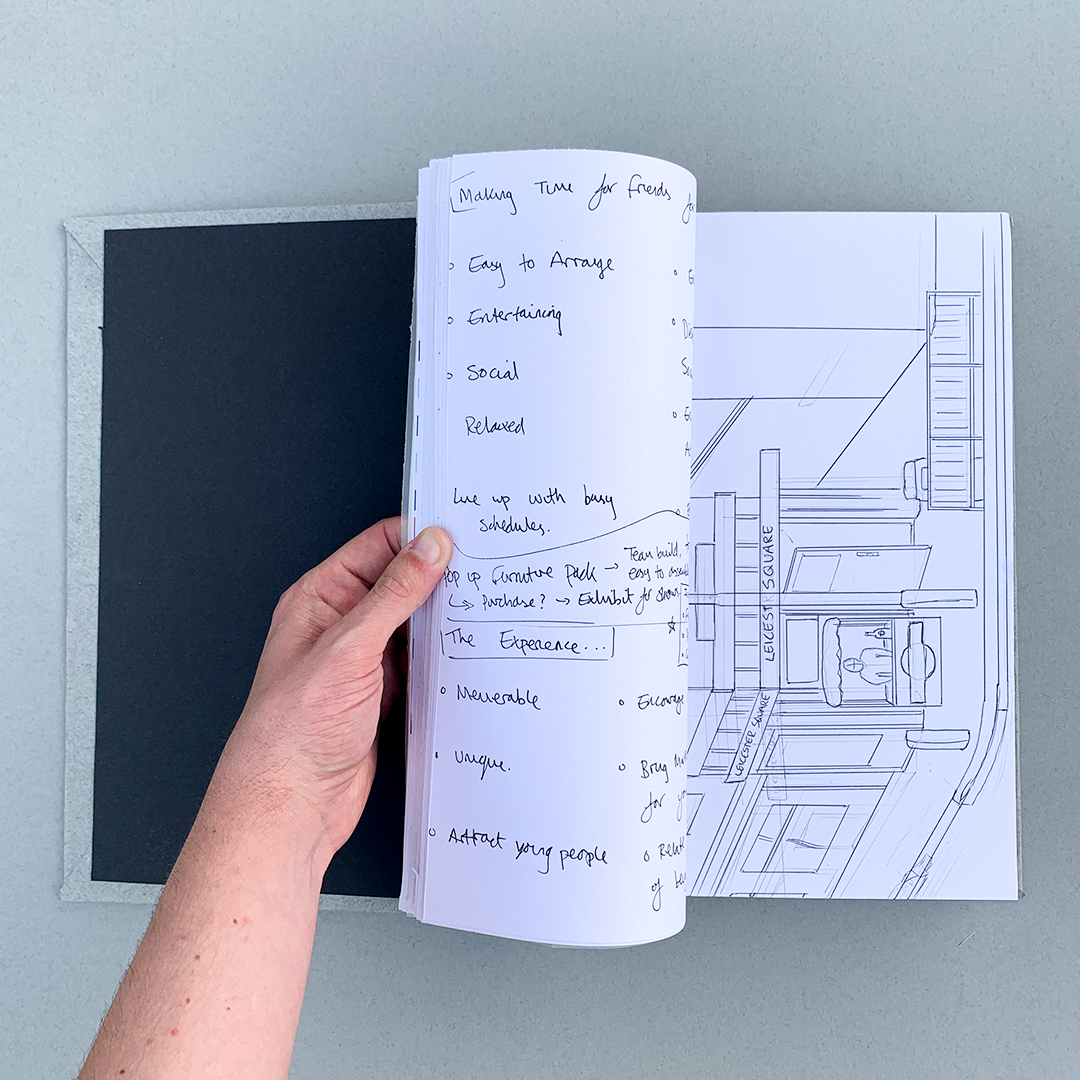 Making Time for friends for
○ Easy to Arrange
○ Entertaining
○ Social
Relaxed
Line up with busy
schedules.
Pop up Furniture Pack → Team build,
easy to
↳> Purchase? → Exhibit for
The Experience...
○ Memerable
○ Unique.
○ Attract young people
○ Encourage
○ Bring
for
○
of
LEICESTER SQUARE
LEICESTER SQUARE